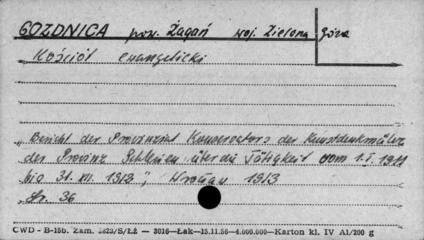 GOZDNICA pow. Żagań woj. Zielona Góra
Kościół ewangelicki
„Bericht der Provinzial Konservators der Kunstdenkmäler
der Provinz Schlesien über die Tätigkeit vom 1.I.1911
bis 31.XII.1912", Wrocław 1913
str. 36
CWD - B-15b. Zam. 5825/S/ŁŻ — 3016—Łak—15.11.56—4.000.000—Karton kl. IV A1/200 g